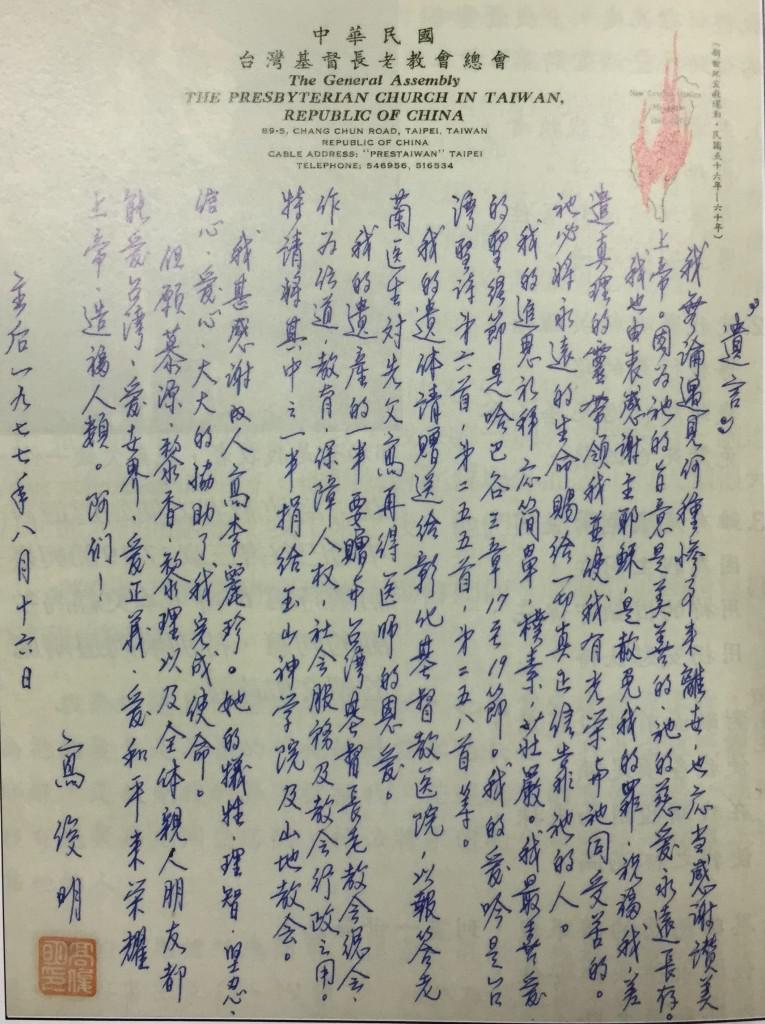 中華民國
台灣基督長老教會總會
The General Assembly
THE PRESBYTERIAN CHURCH IN TAIWAN,
REPUBLIC OF CHINA
89-5, CHANG CHUN ROAD, TAIPEI, TAIWAN
REPUBLIC OF CHINA
CABLE ADDRESS: "PRESTAIWAN" TAIPEI
TELEPHONE: 546956, 516534
New Century Mission
民國五十六年—六十年)
遺言
我無論遇見何種慘事来離世,也应当感谢讚美
上帝。因为祂的旨意是美善的,祂的慈爱永遠長存。
我也由衷感謝主耶穌,是赦免我的罪,祝福我,差
遣真理的靈带領我並使我有光荣与祂同受苦的。
祂必将永遠的生命賜給一切真正信靠祂的人。
我的追思礼拜应简單,樸素,莊嚴。我最喜爱
的聖經節是哈巴谷三章17至19節。我的爱吟是台
湾聖诗第六首,第二五五首,第二五八首等。
我的遺体請贈送给彰化基督教医院,以報答老
蘭医生对先父高再得医师的恩爱。
我的遺産的一半要贈与台湾基督長老教会總会,
作为传道,教育,保障人权,社会服務及教会行政之用。
特请将其中之一半捐给玉山神学院及山地教会。
我甚感谢内人高李麗珍。她的犠牲,理智,坚忍,
信心,爱心,大大的協助了我完成使命。
但願慕源,黎香,黎理以及全体親人朋友都
能爱台湾,爱世界,爱正義,爱和平来荣耀
上帝,造福人類。阿们!
主后一九七七年八月十六日
高俊明